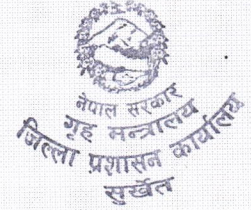 नेपाल सरकार
गृह मन्त्रालय
जिल्ला प्रशासन कार्यालय
सुर्खेत